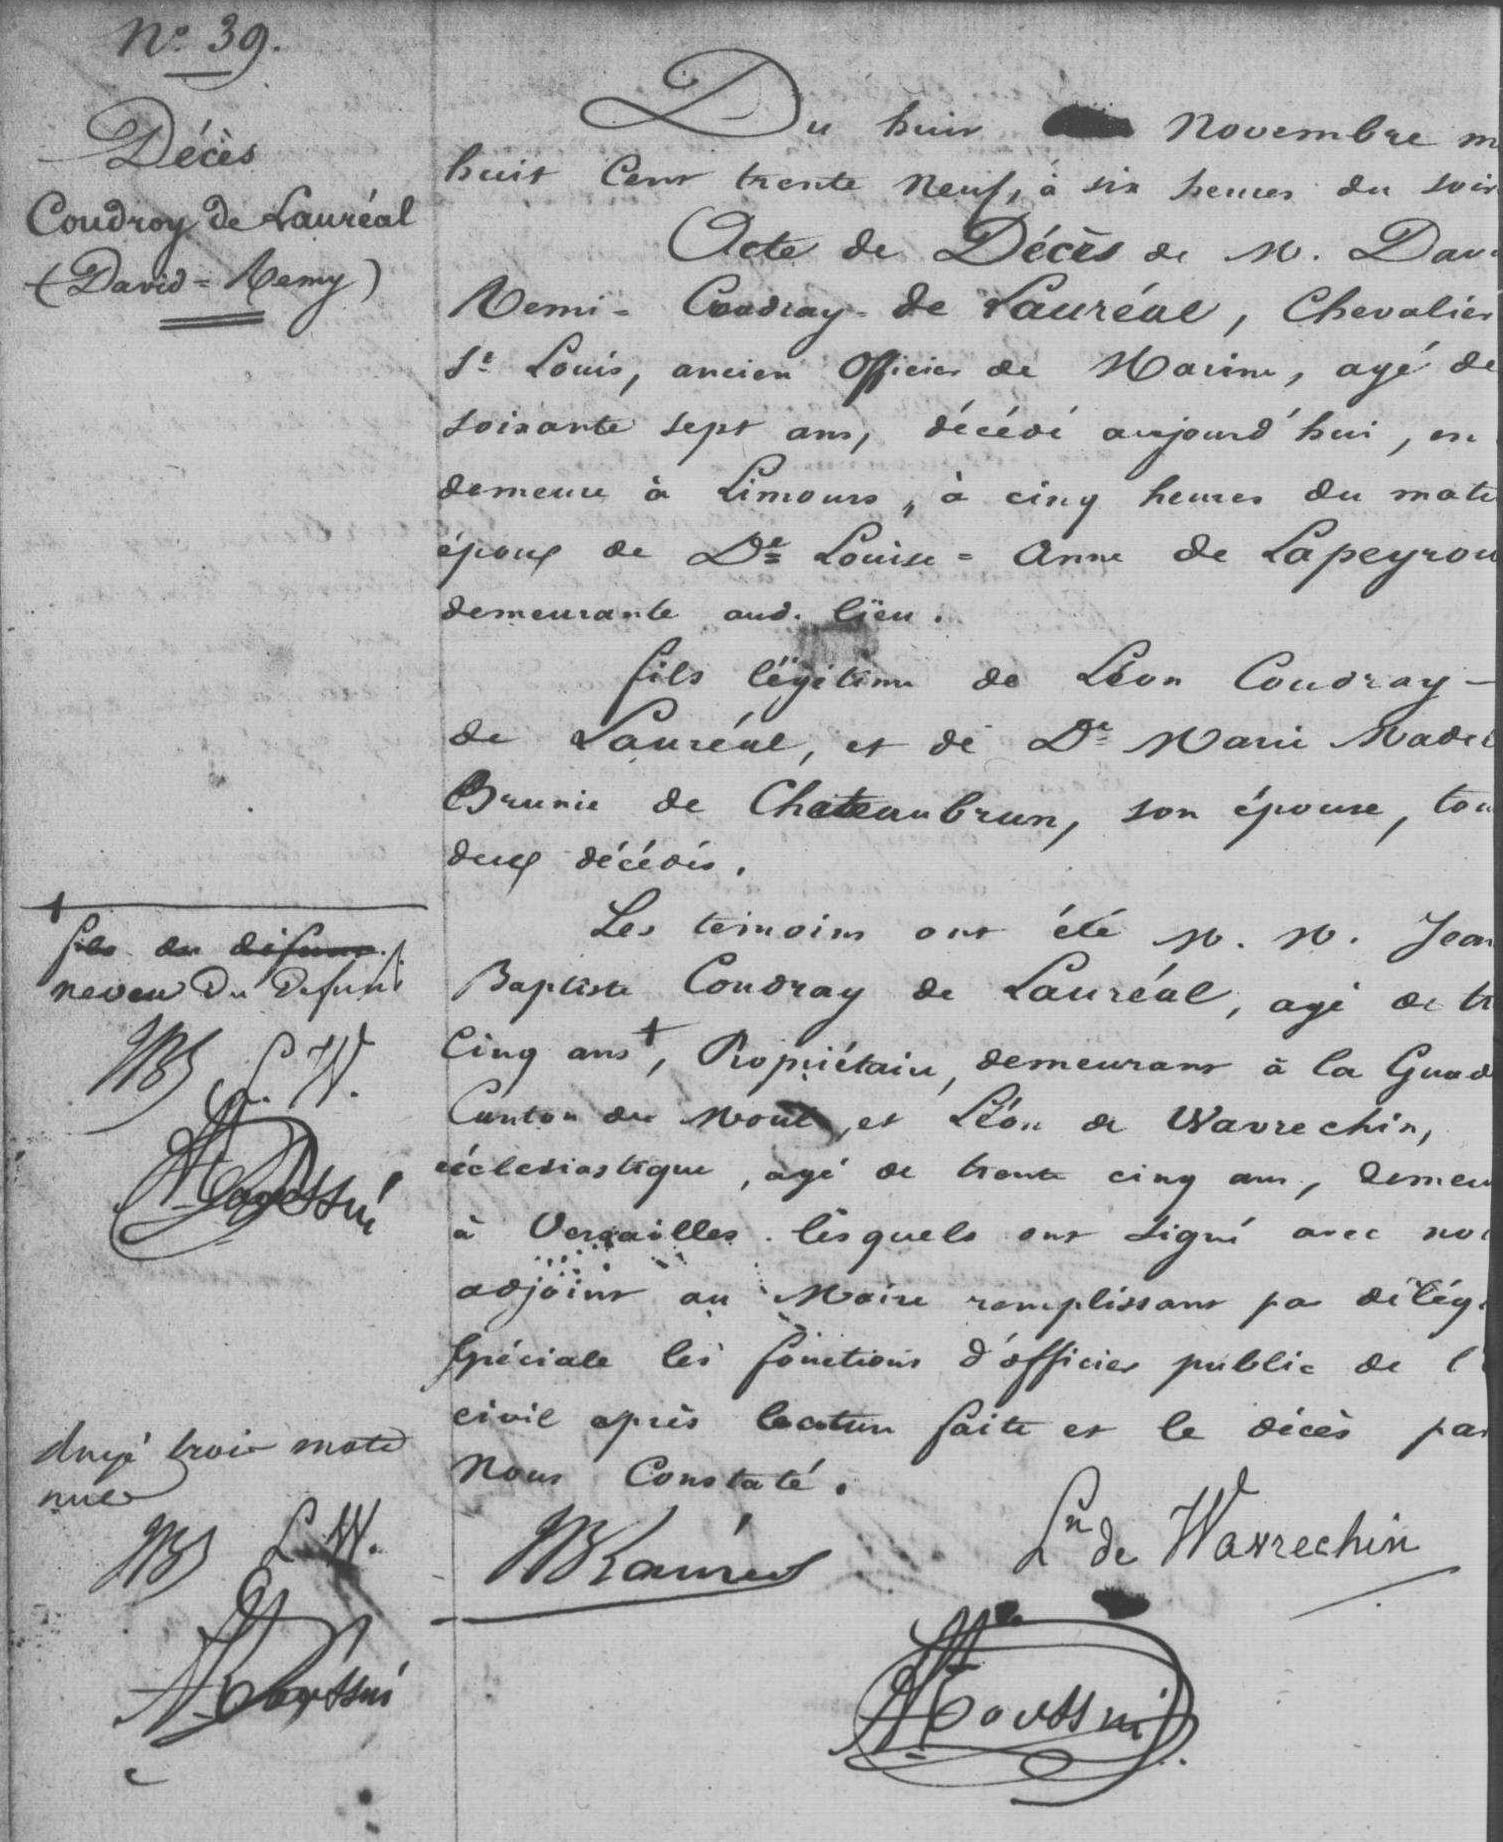 N.o 39.
Décès
Coudroy de Lauréal
(David = Remy)
Du huit Novembre m
huit Cent trente neuf, à six heures du soir
Acte de Décès de M. Dav
Remi - Coudray - de Lauréal, Chevalier
St Louis, ancien officier de Marine, agé de
soixante sept ans, décédé aujourd'hui, en
demeure à Limours, à cinq heures du mati
époux de De Louise = Anne de Lapeyrou
demeurante aud. lieu.
fils légitime de Léon Coudray -
de Lauréal, et de De Marie Madel
Brunie de Chateaubrun, son épouse, tou
deux décédés.
Les temoins ont été M. M. Jean
Baptiste Coudray de Lauréal, agé de tr
Cinq ans +, Propriétaire, demeurant à la Guad
Canton du Moule, et Léon de Wavrechin,
écclesiastique, agé de trente cinq ans, demeu
à Versailles. lesquels ont signé avec no
adjoint au Maire remplissant par délég
spéciale les fonctions d'officier public de l'
civil après lecture faite et le décès par
Nous Constaté.
+
fils du défunt.
neveu du défunt
L. W.
Rayé trois mots
nuls
L. W.
JB Lauréal
Ln de Wavrechin